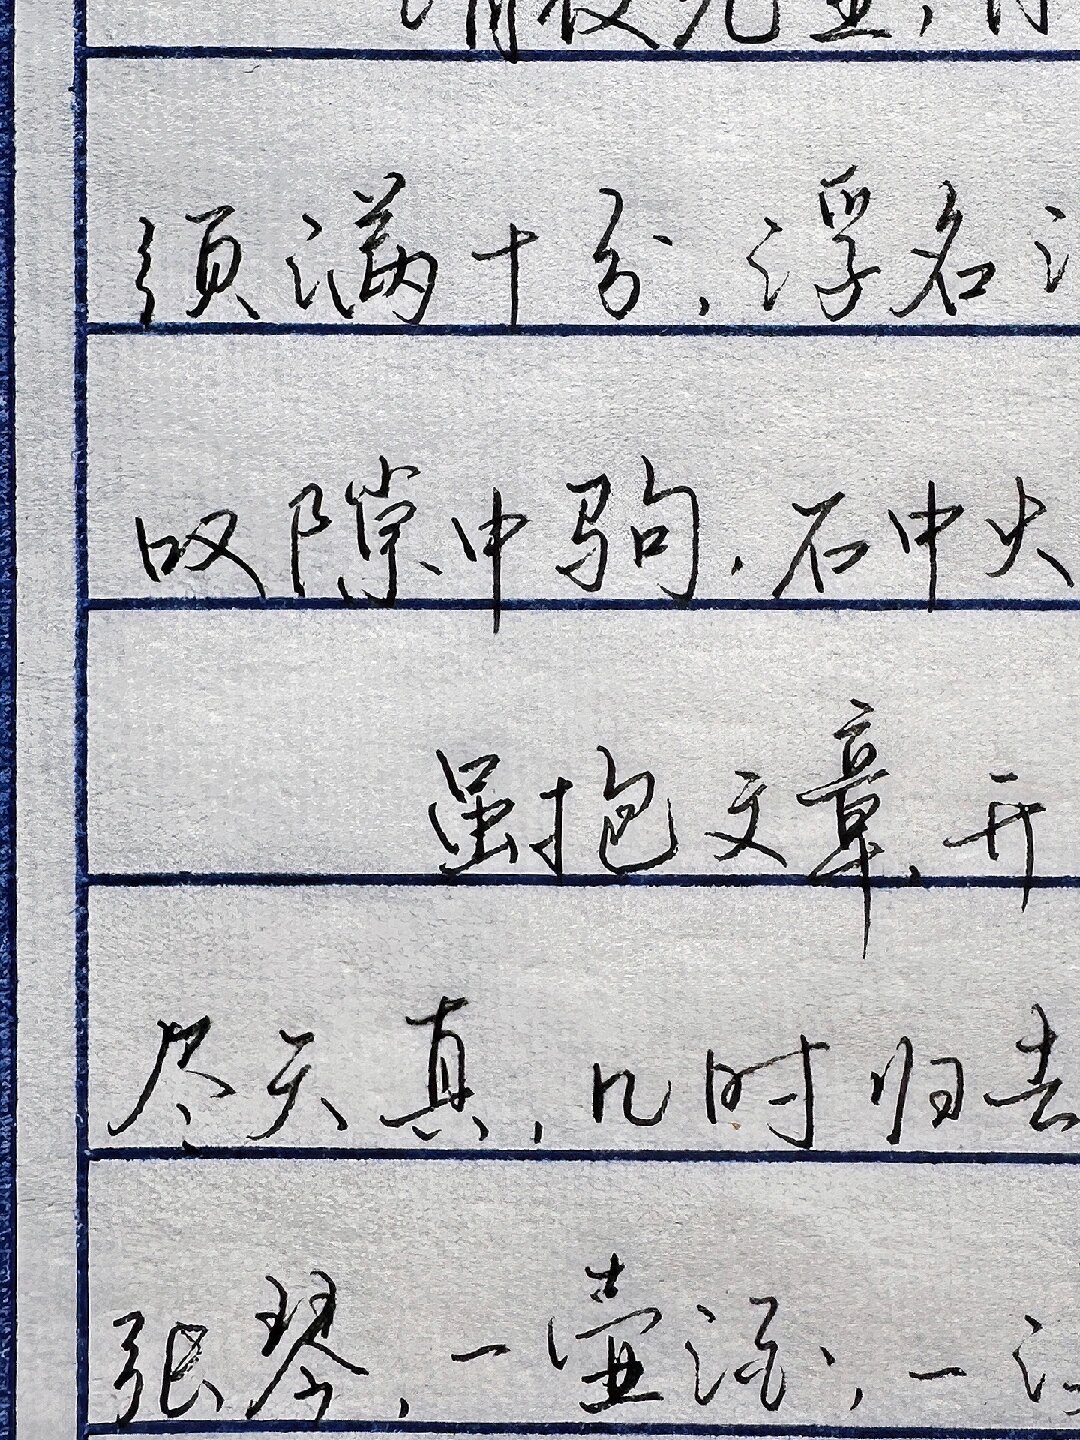 清夜无尘,
须满十分,浮名
叹隙中驹.石中火
虽抱文章,开
尽天真,几时归去
张琴,一壶酒,一